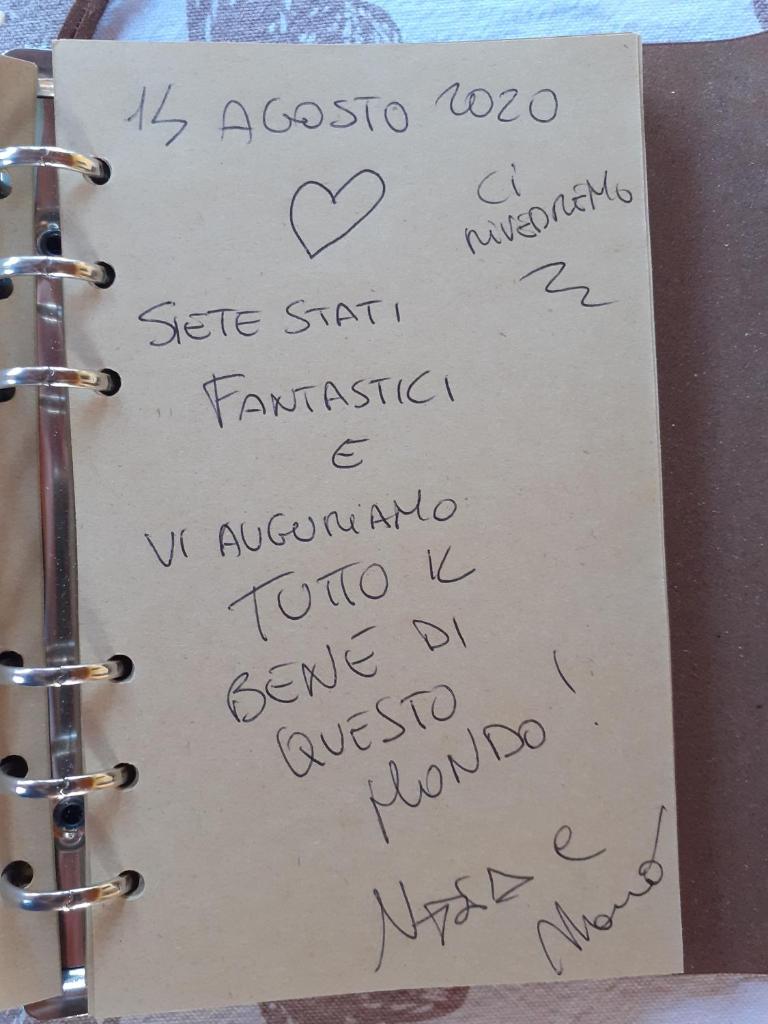 AGOSTO 2020
CI
RIVEDREMO
SIETE STATI
FANTASTICI
E
VI AUGURIAMO
TUTTO IL
BENE DI
QUESTO
MONDO!
e